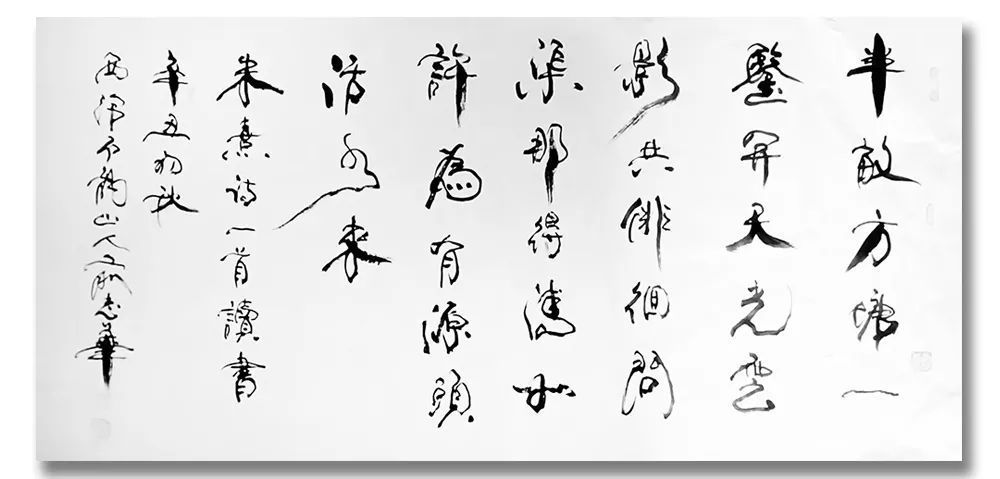 半畝方塘一
鑒開天光雲
影共徘徊問
渠那得清如
許為有源頭
活水來
朱熹詩一首讀書
辛丑初秋
西 鶴山人 志華